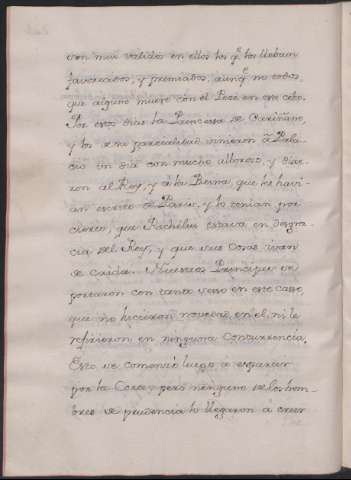 son mui validos en ellos los q.e los llevan
favorecidos, y premiados, aunq.e no todos,
que alguno muere con el Pese en este cebo.
Por estos dias la Princessa de Cariñano,
y los de su parcialidad vinieron à Pala-
cio un dia con mucho alboroso, y dixe-
ron al Rey, y à la Reina, que les havi-
an escrito de Paris, y lo tenian por
cierto, que Richelieu estava en desgra-
cia del Rey, y que sus cosas ivan
de caida. Nuestros Principes se
portaron con tanto seso en este casso,
que no hicieron novedad en el, ni le
refirieron en ninguna concurrencia.
Esto se comenzò luego à esparcir
por la Corte; pero ninguno de los hom-
bres de prudencia lo llegaron à creer